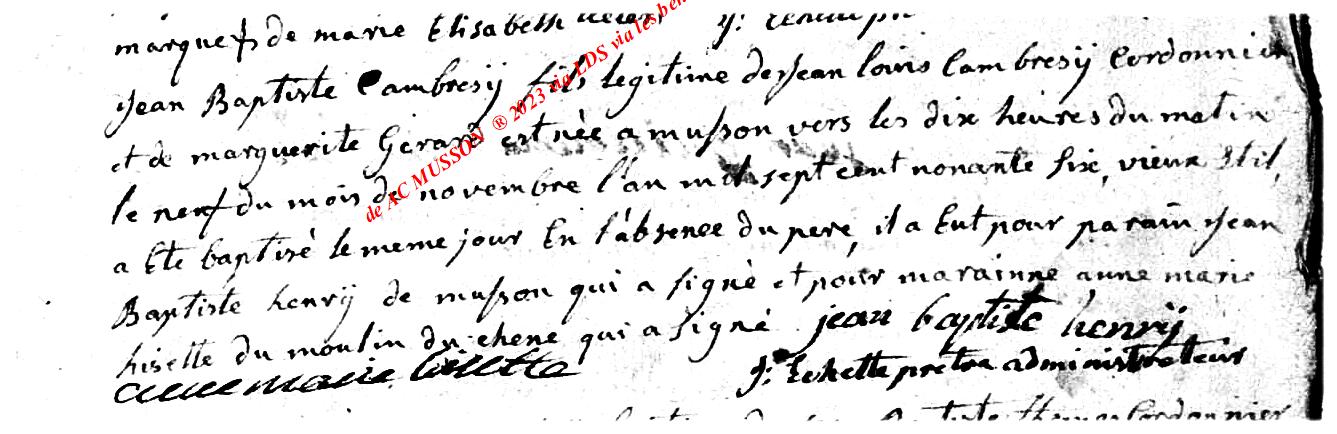 marque de marie Elisabeth
Jean Baptiste Cambresÿ fils legitime de Jean louis Cambresÿ Cordonnier
et de marguerite Gerard est née a musson vers les dix heures du matin
le neuf du mois de novembre l'an mil sept cent nonante six, vieux Stil,
a Ete baptisé le meme jour En l'absence du pere, il a Eut pour parain Jean
Baptiste henrÿ de musson qui a signé et pour marainne anne marie
hisette du moulin du chene qui a signé jean baptiste henrÿ
anne marie
pretre administrateur
de AC MUSSON ® 2023 via LDS via les